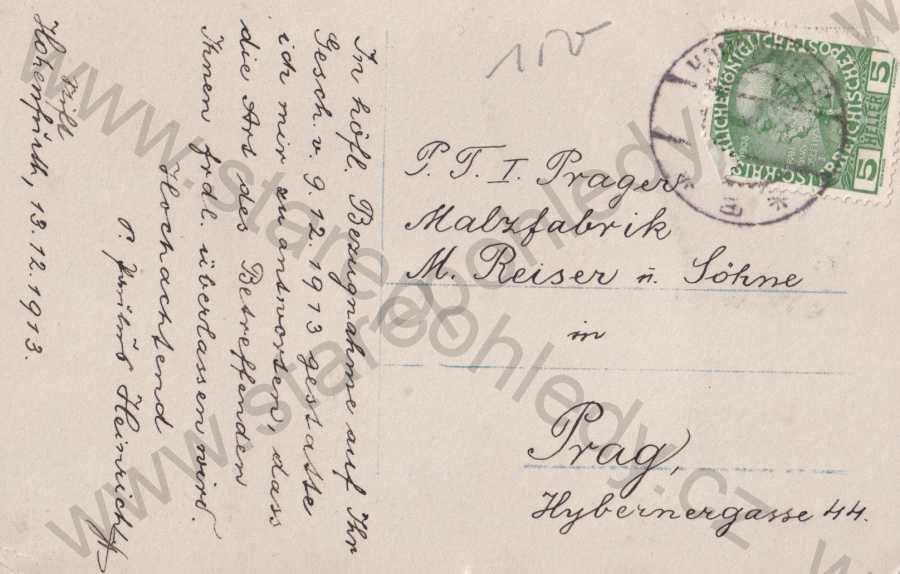 In höfl. Bezugnahme auf Ihr
Gesch. v. 9.12.1913 gestatte
ich mir zu antworten, dass
die Art des Betreffenden
Ihnen frdl. überlassen wird.
Hochachtend
P. Heinrich
Stift
Hohenfurth, 13.12.1913.
150
P. T. I. Prager
Malzfabrik
M. Reiser u. Söhne
in
Prag,
Hybernergasse 44.
5
HELLER
5
www.starepohledy.cz
www.starepohledy.cz